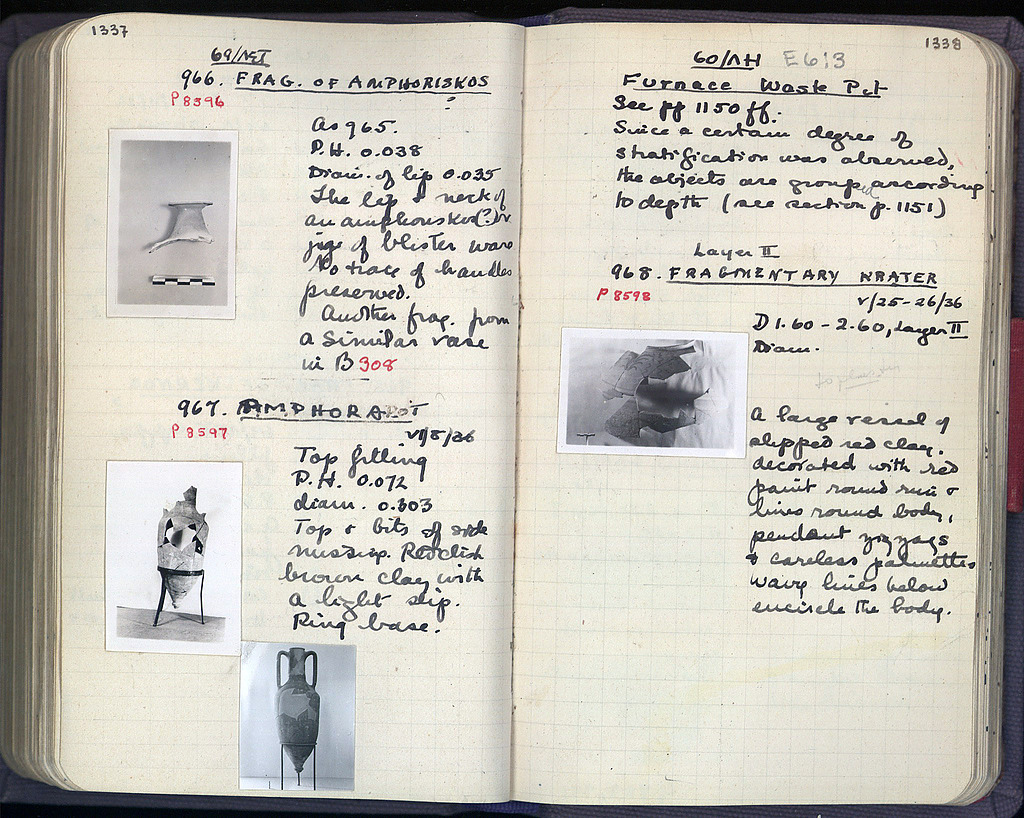 1337
966. FRAG. OF AMPHORISKOS
?
P 8596
As 965.
P.H. 0.038
Diam. of lip 0.035
The lip & neck of
an amphoriskos(?) or
jug of blister ware
No trace of handles
preserved.
Another frag. from
a similar vase
in B 308
967. AMPHORA
P 8597
VI/8/36
Top filling
P.H. 0.072
diam. 0.303
Top & bits of side
missing. Reddish
brown clay with
a light slip.
Ring base.
1338
60/ΛΗ E613
Furnace Waste Pit
See pp 1150 ff.
Since a certain degree of
stratification was observed,
the objects are grouped according
to depth (see section p. 1151)
Layer II
968. FRAGMENTARY KRATER
P 8598
V/25-26/36
D 1.60 - 2.60, Layer II
Diam.
A large vessel of
slipped red clay.
decorated with red
paint round rim &
lines round body,
pendant zigzags
& careless palmettes
wavy lines below
encircle the body.